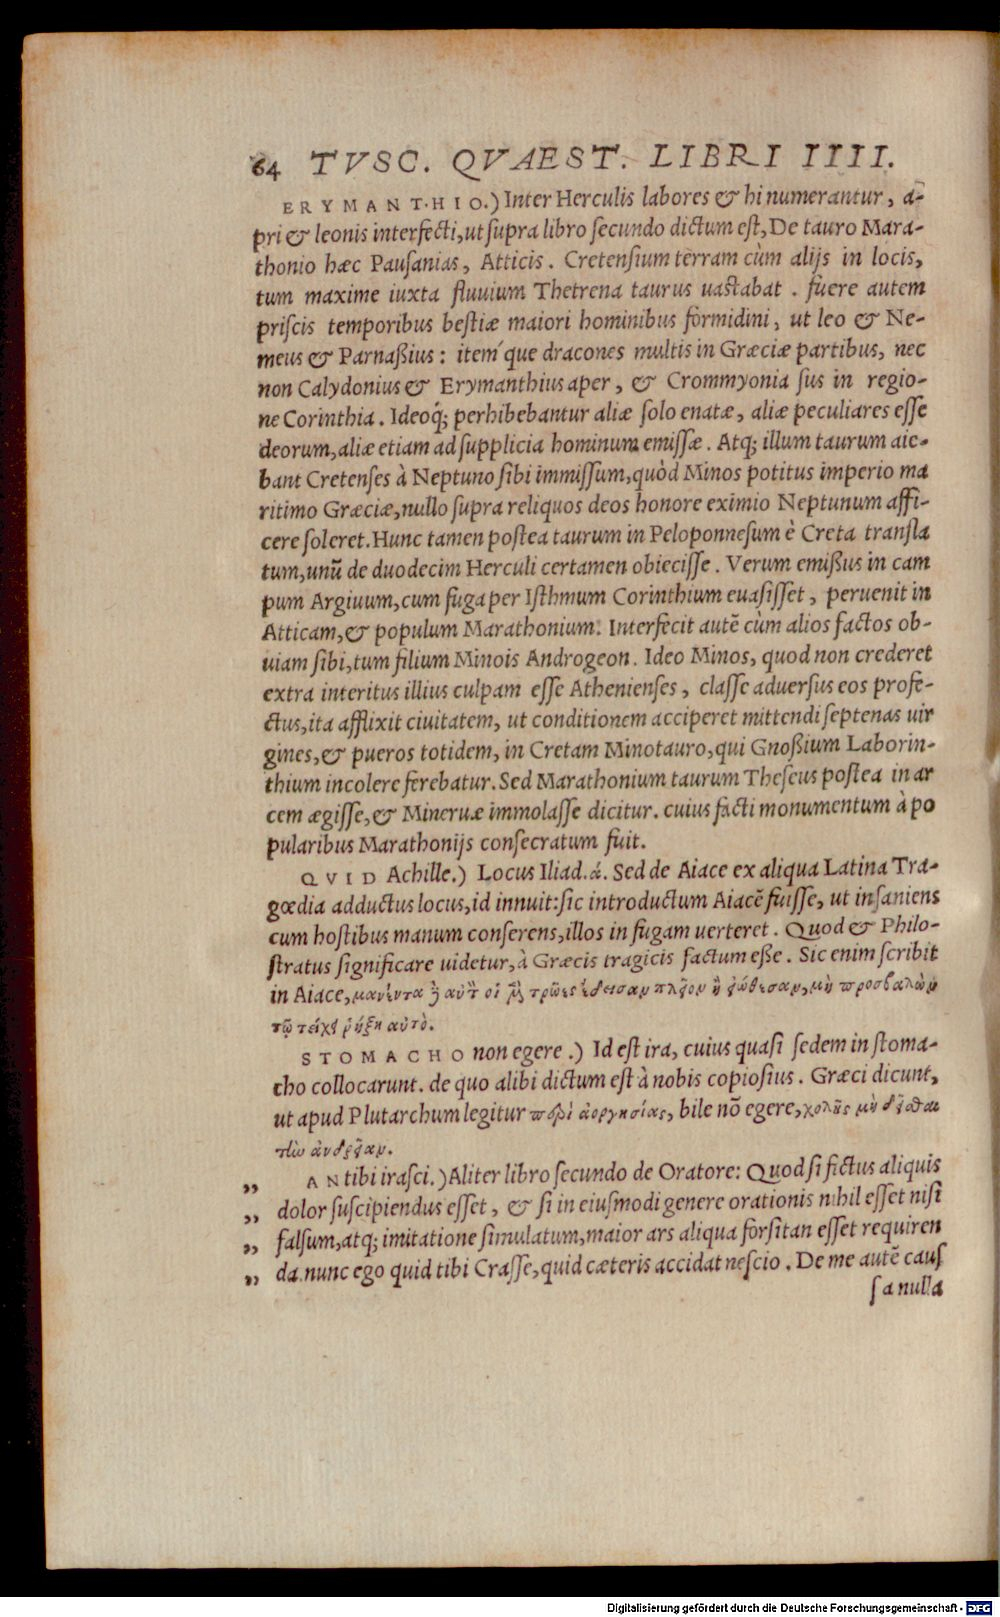 64 TVSC. QVAEST. LIBRI IIII.
ERYMANTHIO.) Inter Herculis labores & hi numerantur, a-
pri & leonis interfecti, ut supra libro secundo dictum est, De tauro Mara-
thonio hæc Pausanias, Atticis. Cretensium terram cùm alijs in locis,
tum maxime iuxta fluuium Thetrena taurus uastabat. fuere autem
priscis temporibus bestiæ maiori hominibus formidini, ut leo & Ne-
meus & Parnaßius: item´que dracones multis in Græciæ partibus, nec
non Calydonius & Erymanthius aper, & Crommyonia sus in regio-
ne Corinthia. Ideoq́; perhibebantur aliæ solo enatæ, aliæ peculiares esse
deorum, aliæ etiam ad supplicia hominum emissæ. Atq; illum taurum aie-
bant Cretenses à Neptuno sibi immissum, quòd Minos potitus imperio ma
ritimo Græciæ, nullo supra reliquos deos honore eximio Neptunum affi-
cere soleret. Hunc tamen postea taurum in Peloponnesum è Creta transla
tum, unũ de duodecim Herculi certamen obiecisse. Verum emißus in cam
pum Argiuum, cum fuga per Isthmum Corinthium euasisset, peruenit in
Atticam, & populum Marathonium. Interfecit autẽ cùm alios factos ob-
uiam sibi, tum filium Minois Androgeon. Ideo Minos, quod non crederet
extra interitus illius culpam esse Athenienses, classe aduersus eos profe-
ctus, ita afflixit ciuitatem, ut conditionem acciperet mittendi septenas uir
gines, & pueros totidem, in Cretam Minotauro, qui Gnoßium Laborin-
thium incolere ferebatur. Sed Marathonium taurum Theseus postea in ar
cem ægisse, & Mineruæ immolasse dicitur. cuius facti monumentum à po
pularibus Marathonijs consecratum fuit.
QVID Achille.) Locus Iliad. ά. Sed de Aiace ex aliqua Latina Tra-
gœdia adductus locus, id innuit: sic introductum Aiacẽ fuisse, ut insaniens
cum hostibus manum conserens, illos in fugam uerteret. Quod & Philo-
stratus significare uidetur, à Græcis tragicis factum eße. Sic enim scribit
in Aiace, μανέντα ἢ αὐτὸν οἱ μὲν τρῶες ἔδεισαν πλέον ἢ εἰώθεσαν, μὴ προσβαλὼν
τῷ τείχει ῥήξῃ αὐτὸ.
STOMACHO non egere.) Id est ira, cuius quasi sedem in stoma-
cho collocarunt. de quo alibi dictum est à nobis copiosius. Græci dicunt,
ut apud Plutarchum legitur περὶ ἀοργησίας, bile nõ egere, χολῆς μὴ δεῖσθαι
τὴν ἀνδρείαν.
AN tibi irasci.) Aliter libro secundo de Oratore: Quod si fictus aliquis
„ dolor suscipiendus esset, & si in eiusmodi genere orationis nihil esset nisi
„ falsum, atq; imitatione simulatum, maior ars aliqua forsitan esset requiren
„ da. nunc ego quid tibi Crasse, quid cæteris accidat nescio. De me autẽ caus
sa nulla
Digitalisierung gefördert durch die Deutsche Forschungsgemeinschaft - DFG